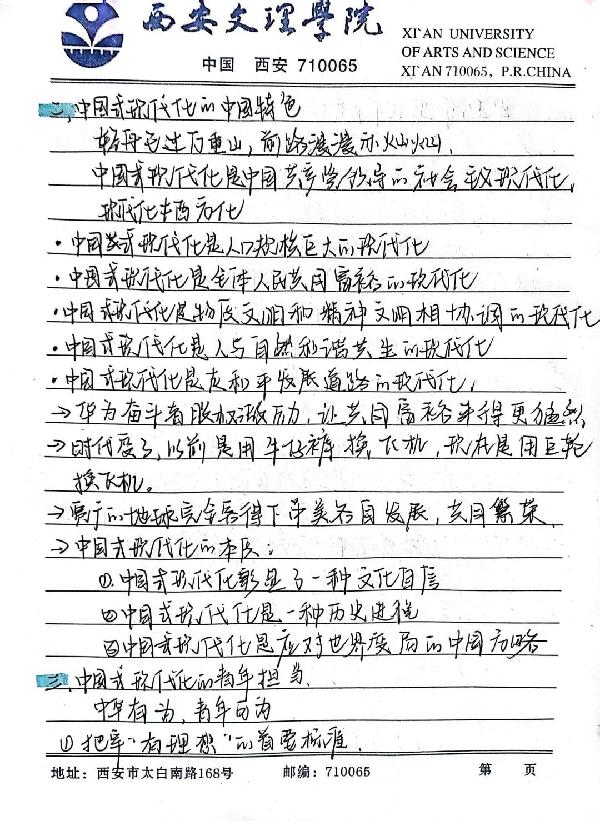 西安文理学院
XI'AN UNIVERSITY
OF ARTS AND SCIENCE
中国 西安 710065
XI'AN 710065, P.R.CHINA
二、中国式现代化的中国特色
轻舟已过万重山,前路漫漫亦灿灿.
中国式现代化是中国共产党领导的社会主义现代化,
现代化≠西方化
·中国式现代化是人口规模巨大的现代化
·中国式现代化是全体人民共同富裕的现代化
·中国式现代化是物质文明和精神文明相协调的现代化
·中国式现代化是人与自然和谐共生的现代化
·中国式现代化是走和平发展道路的现代化.
→华为奋斗者股权激励,让共同富裕来得更猛烈
→时代变了,以前是用牛仔裤换飞机,现在是用巨轮
换飞机。
→宽广的地球完全容得下中美各自发展,共同繁荣.
→中国式现代化的本质:
①中国式现代化彰显了一种文化自信
②中国式现代化是一种历史进程
③中国式现代化是应对世界变局的中国方略
三、中国式现代化的青年担当.
中华有为,青年可为
①把牢“有理想”的首要标准.
地址:西安市太白南路168号 邮编:710065 第 页